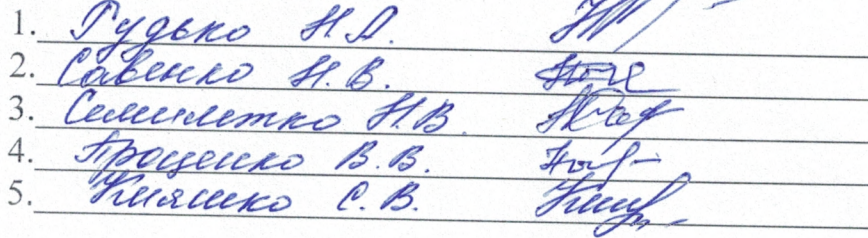 1. Гудько Н.А.
2. Савенко Н.В.
3. Семилетко Н.В.
4. Проценко В.В.
5. С.В.